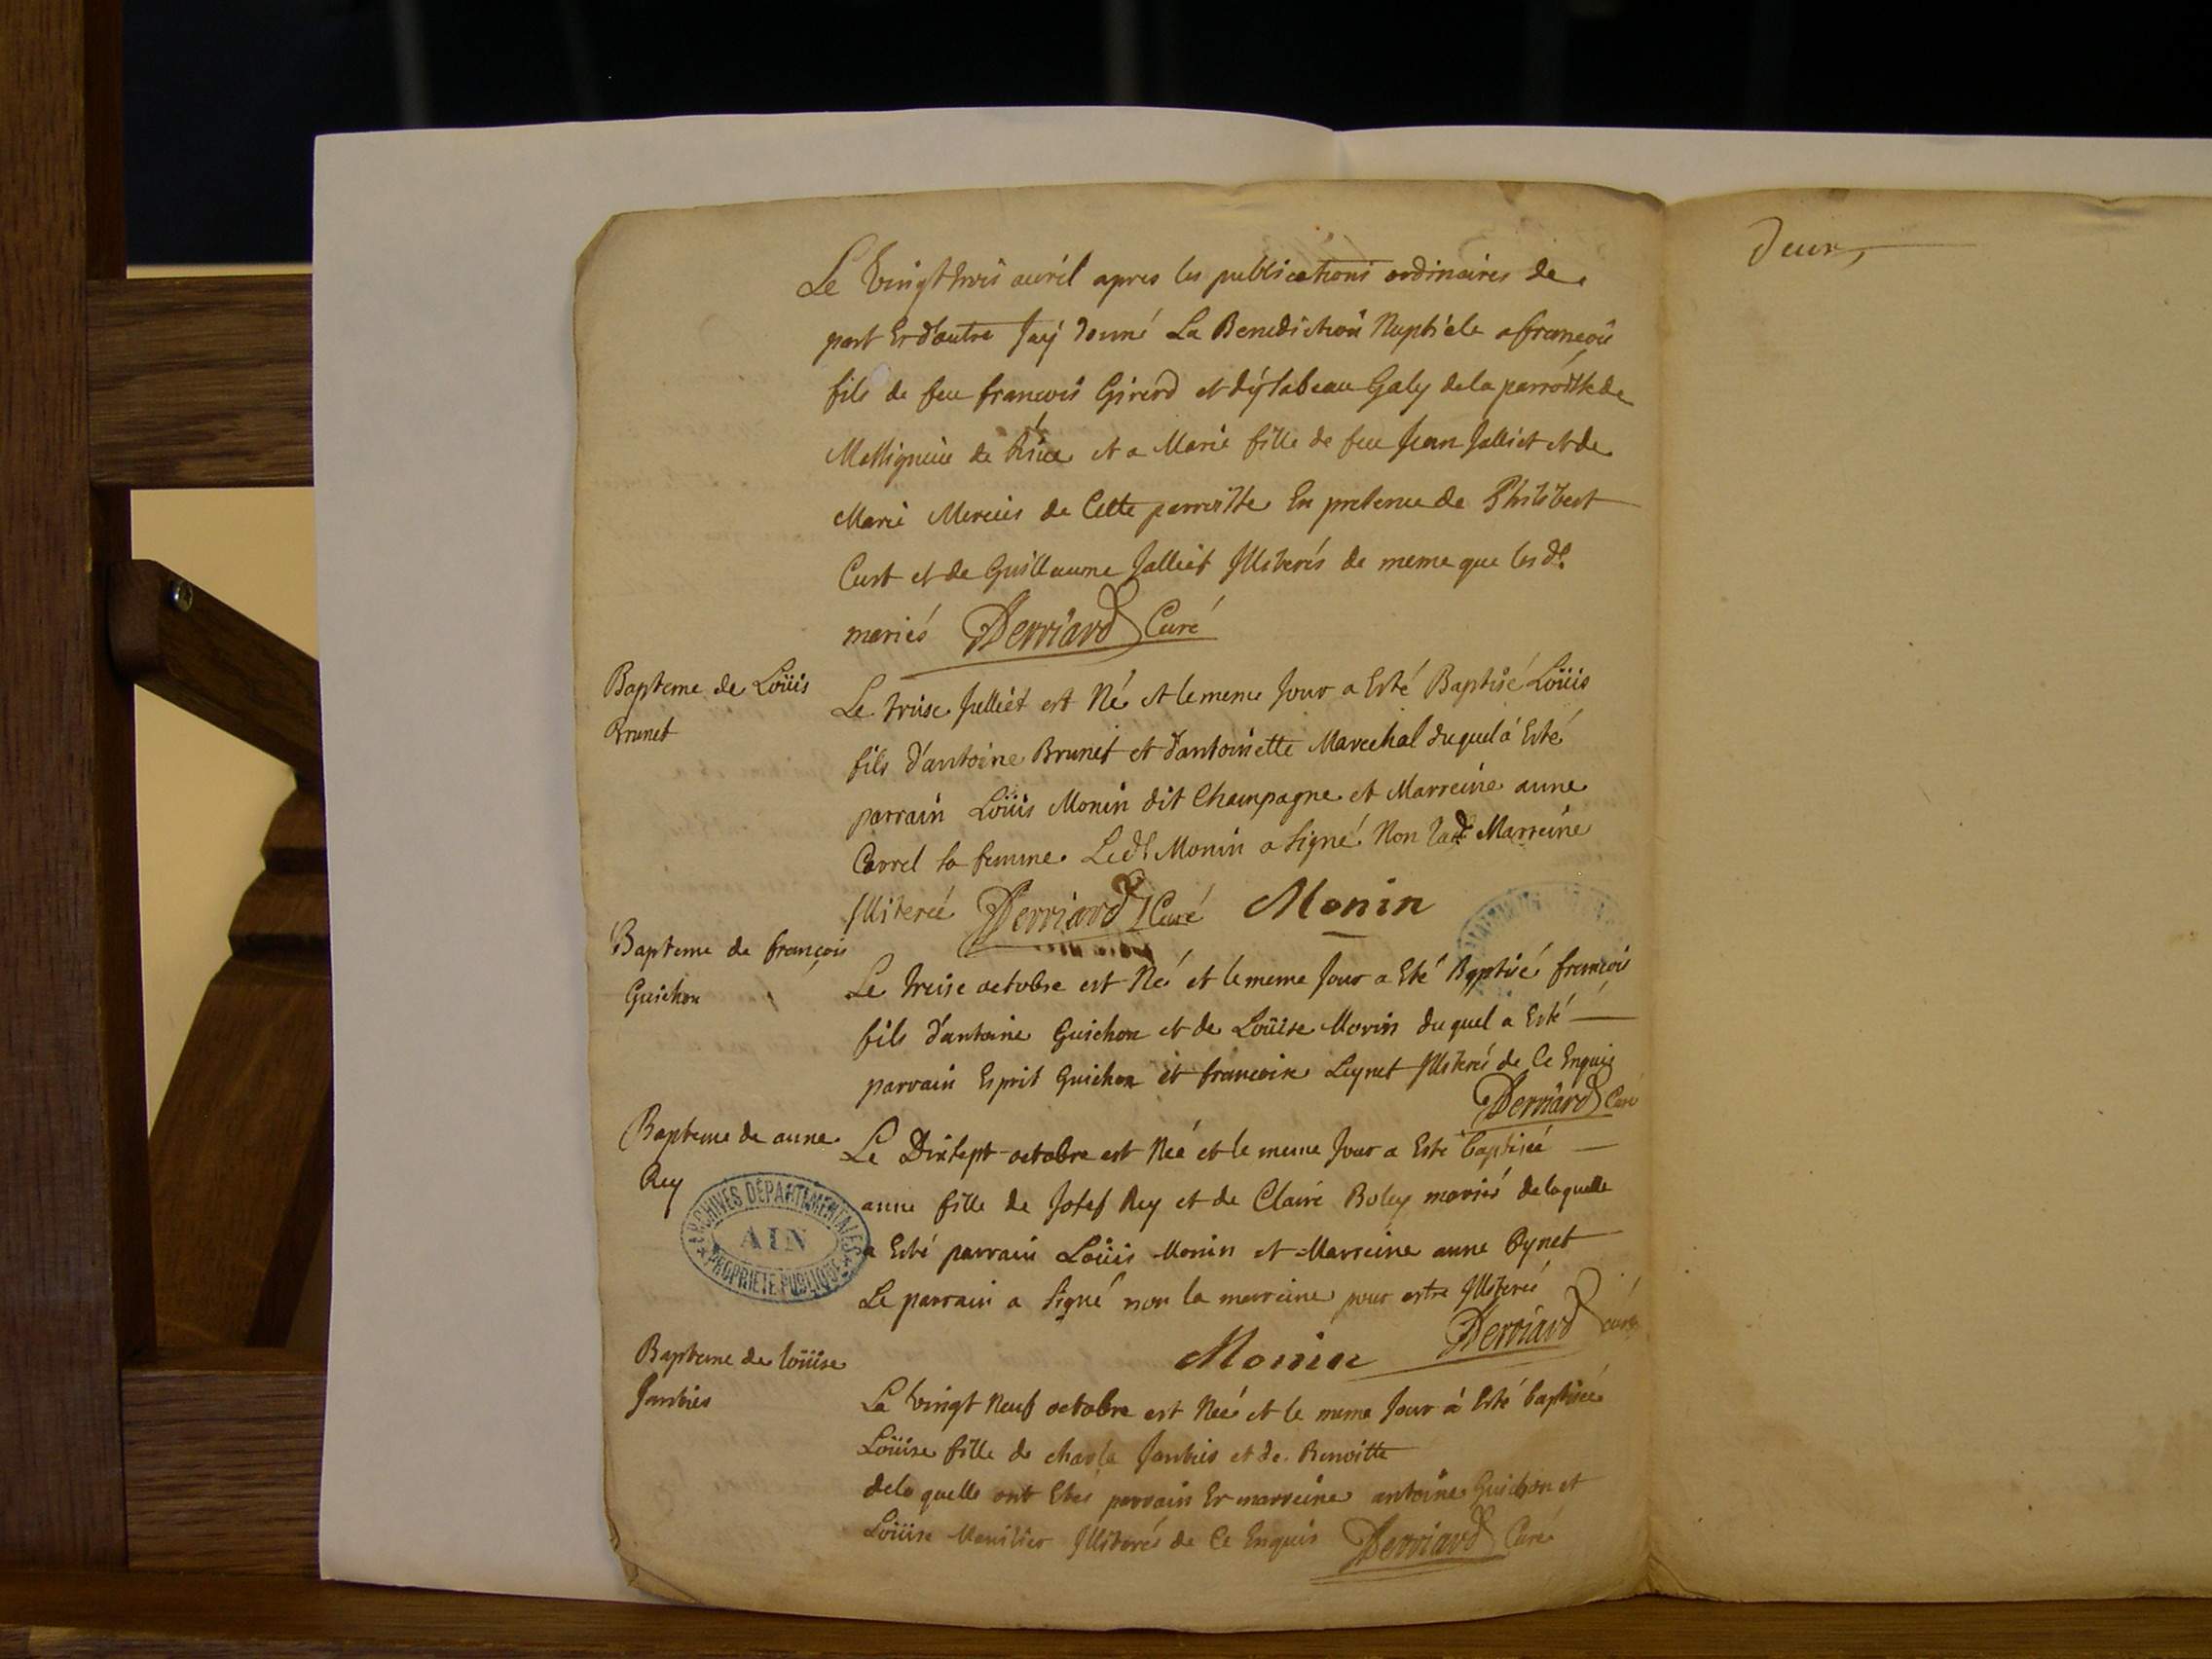 Le Vingt trois auril apres les publications ordinaires de
part Et d'autre Jay donné La Benediction Nuptiale a francois
fils de feu francois Girerd et dysabeau Galy de la parroisse de
Massignieu de Rive et a Marie fille de feu Jean Jalliet et de
Marie Mercier de Cette parroisse En presence de Philibert
Curt et de Guillaume Jalliet Illiterés de meme que les dt.
mariés Derriard Curé
Bapteme de Loüis
Brunet
Le treise Julliet est Né et le meme Jour a Esté Baptisé Loüis
fils d'antoine Brunet et d'antoinette Marechal duquel á Esté
parrain Loüis Monin dit Champagne et Marreine anne
Carrel sa femme. Led. Monin a signé Non lad. Marreine
Illiterée Derriard Curé Monin
Bapteme de françois
Guichon
Le treise octobre est Né et le meme Jour a Eté Baptisé francois
fils d'antoine Guichon et de Loüise Morin du quel a Esté
parrain Esprit Guichon et francoise Leynet Illiterés de Ce Enquis
Derriard Curé
Bapteme de anne
Rey
Le Dixsept octobre est Née et le meme Jour a Esté baptisée
anne fille de Josef Rey et de Claire Boley mariés de laquelle
a Esté parrain Loüis Monin et Marreine anne Cynet
Le parrain a signé non la marreine pour estre Illiterée
Monin Derriard curé
ARCHIVES DÉPARTEMENTALES
AIN
PROPRIÉTÉ PUBLIQUE
Bapteme de loüise
Janvies
Le vingt Neuf octobre est Née et le meme Jour à Esté baptisée
Loüise fille de charle Janvies et de Benoitte
de la quelle ont Etes parrain Et marreine antoine Guichon et
Loüise Illiterés de Ce Enquis Derriard Curé
Deux